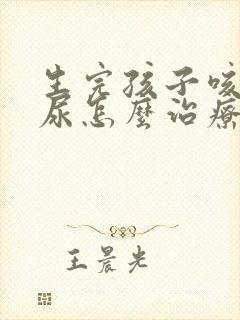 生完孩子咳
尿怎麼治療
王晨光